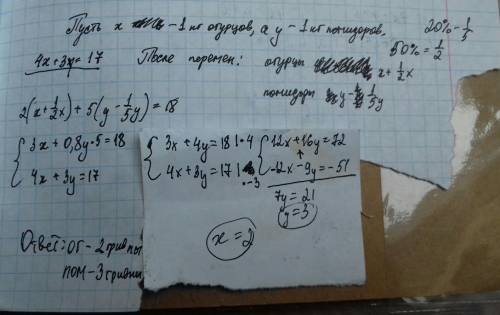 Пусть x - 1 кг огурцов, а y - 1 кг помидоров.
20% - 1/5
50% = 1/2
4x + 3y = 17
После перемен:
огурцы x + 1/2x
помидоры y - 1/5y
2(x + 1/2x) + 5(y - 1/5y) = 18
{ 3x + 0,8y·5 = 18
4x + 3y = 17
{ 3x + 4y = 18 |·4
4x + 3y = 17 |·-3
{ 12x + 16y = 72
+
-12x - 9y = -51
7y = 21
y = 3
x = 2
Ответ: ог - 2 гривны
пом - 3 гривны